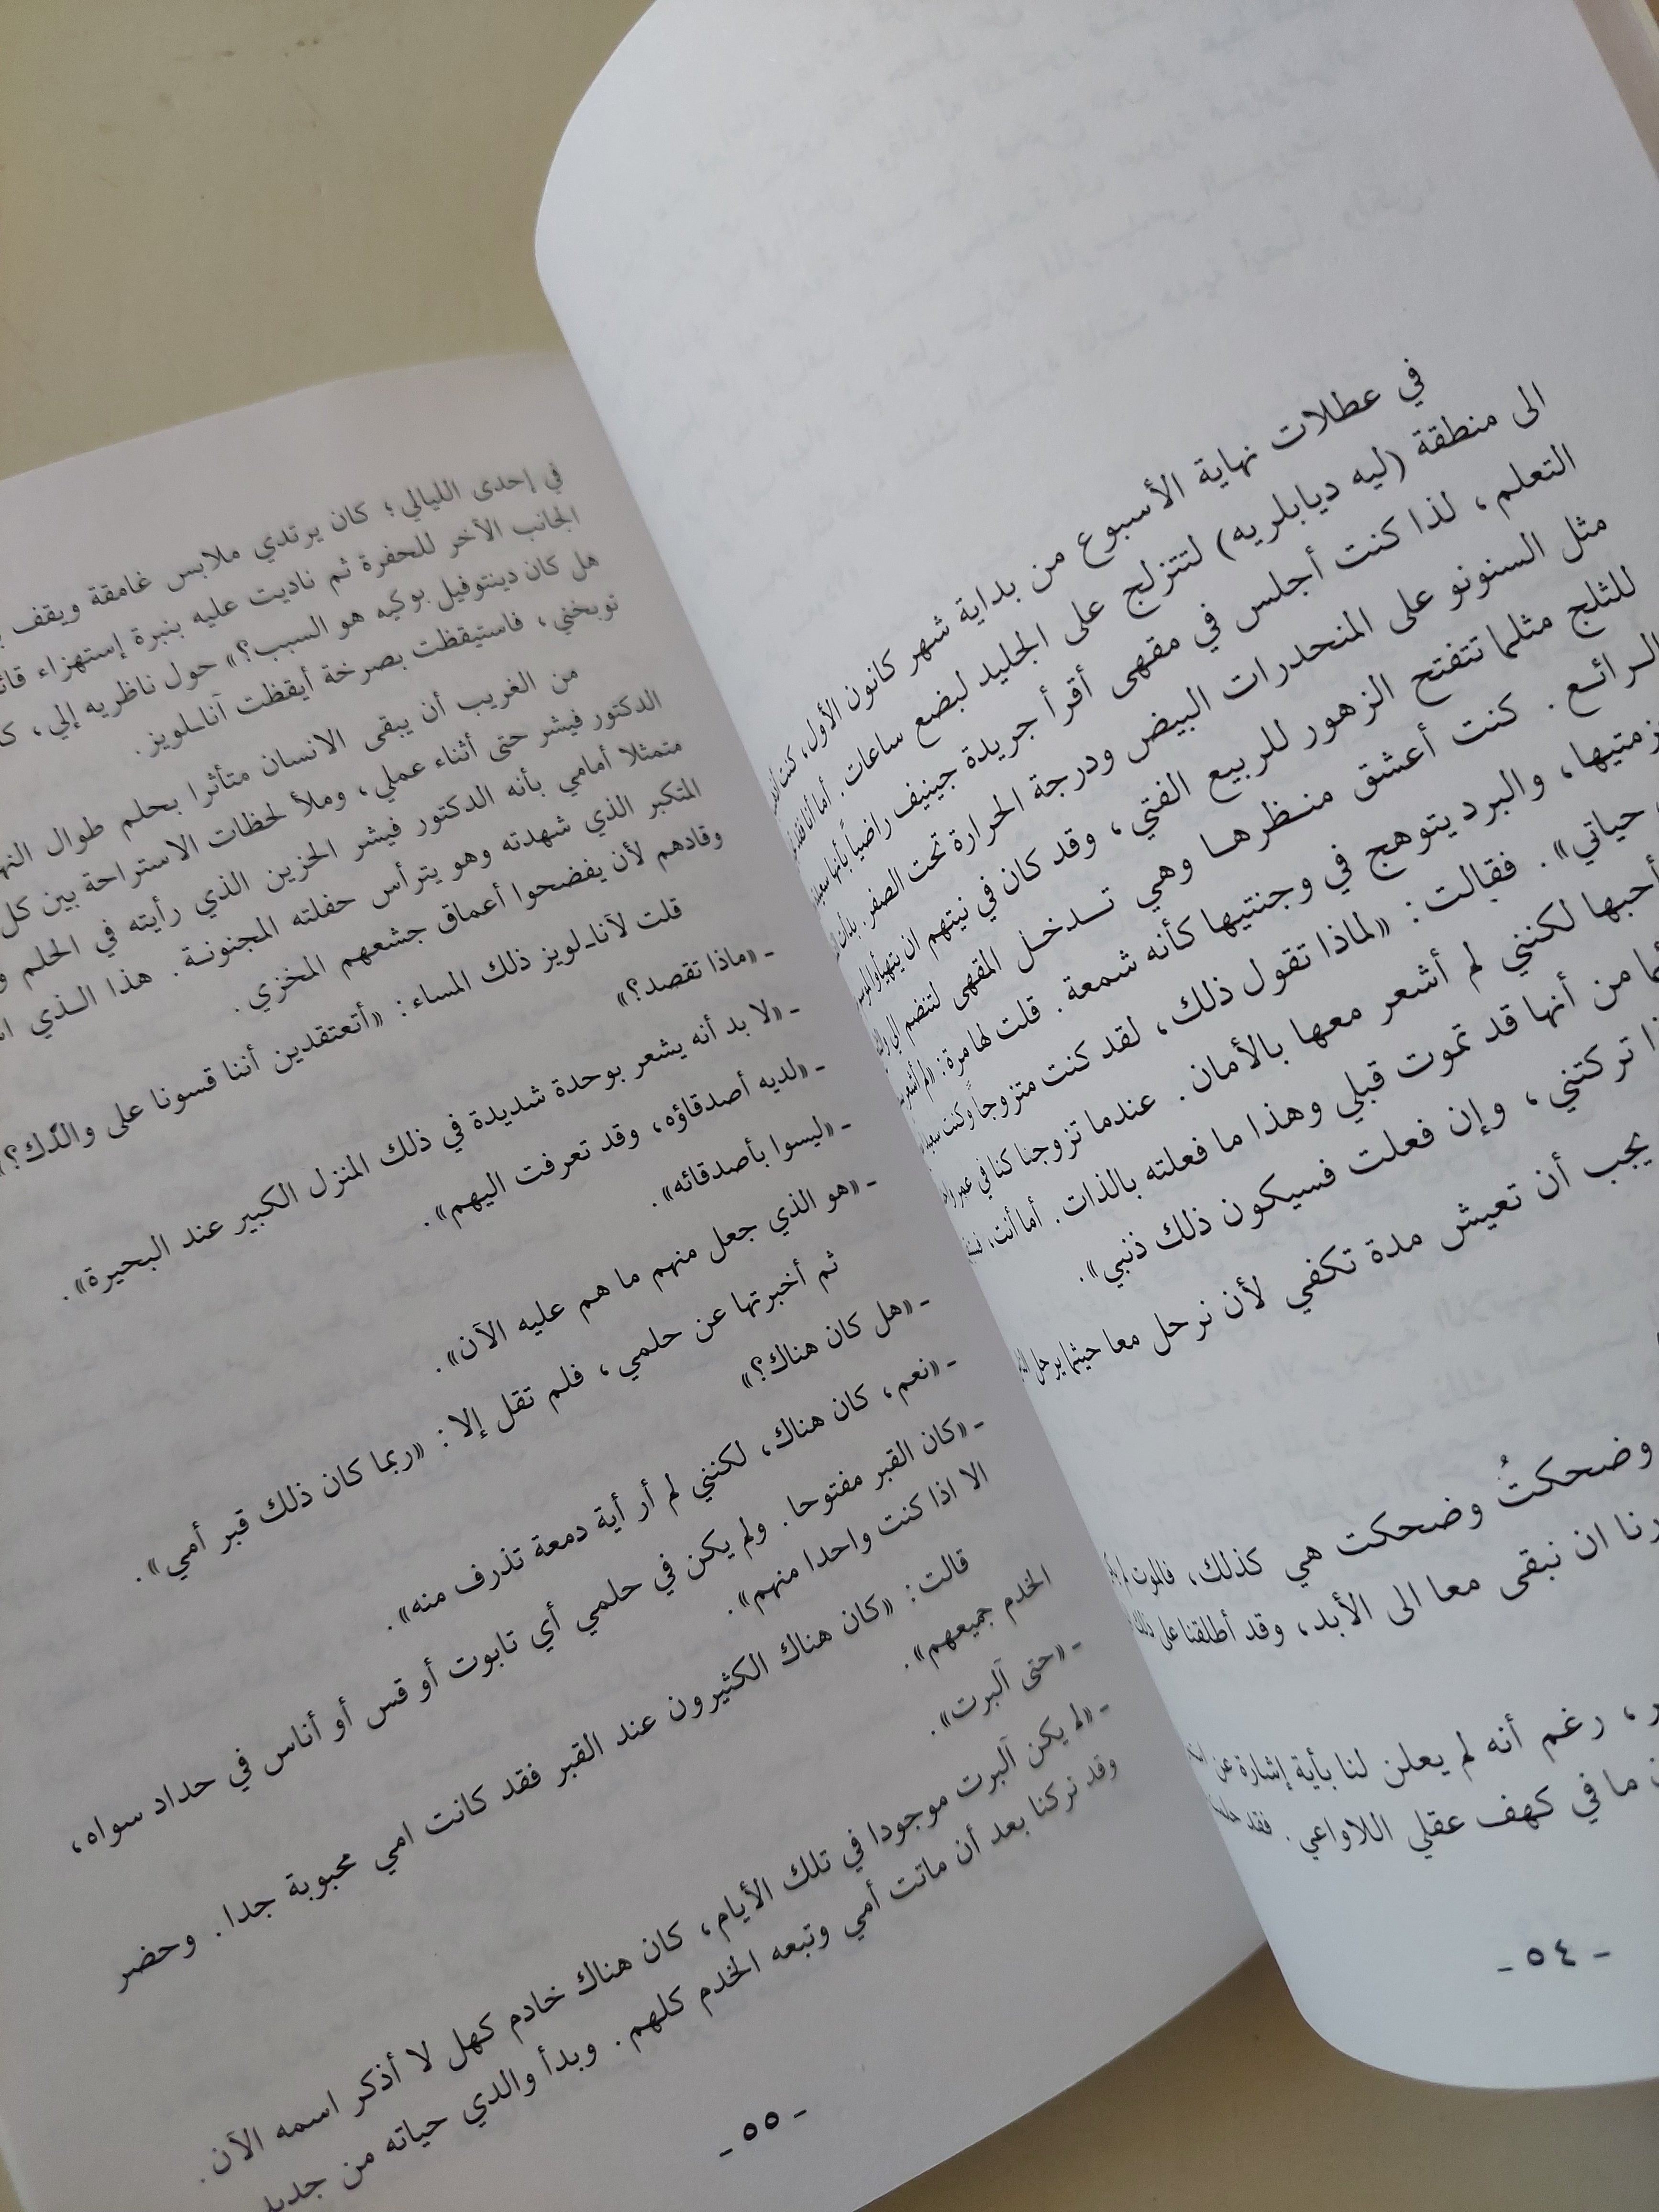 في عطلات نهاية الأسبوع من بداية شهر كانون الأول، كنت
الى منطقة (ليه ديابلريه) لتتزلج على الجليد لبضع ساعات. أما أنا فقد
التعلم، لذا كنت أجلس في مقهى أقرأ جريدة جينيف راضياً بأنها سعيدة
مثل السنونو على المنحدرات البيض ودرجة الحرارة تحت الصفر. بدأت
للثلج مثلما تتفتح الزهور للربيع الفتي، وقد كان في نيتهم ان يتهيأوا لموسم
الرائع. كنت أعشق منظرها وهي تدخل المقهى لتنضم إلي
والبرد يتوهج في وجنتيها كأنه شمعة. قلت لها مرة: «لم أشعر
حياتي». فقالت: «لماذا تقول ذلك، لقد كنت متزوجاً وكنت سعيداً
أحبها لكنني لم أشعر معها بالأمان. عندما تزوجنا كنا في عمر
من أنها قد تموت قبلي وهذا ما فعلته بالذات. أما أنت،
تركتني، وإن فعلت فسيكون ذلك ذنبي».
يجب أن تعيش مدة تكفي لأن نرحل معا حيثما يرحل
وضحكتُ وضحكت هي كذلك، فالموت لم
ان نبقى معا الى الأبد، وقد أطلقنا على ذلك
، رغم أنه لم يعلن لنا بأية إشارة عن
ما في كهف عقلي اللاواعي. فقد
- ٥٤ -
في إحدى الليالي؛ كان يرتدي ملابس غامقة ويقف
الجانب الآخر للحفرة ثم ناديت عليه بنبرة إستهزاء
هل كان دينتوفيل بوكيه هو السبب؟» حول ناظريه إلي،
توبخني، فاستيقظت بصرخة أيقظت آناـلويز.
من الغريب أن يبقى الانسان متأثرا بحلم طوال
الدكتور فيشر حتى أثناء عملي، وملأ لحظات الاستراحة بين كل
متمثلا أمامي بأنه الدكتور فيشر الحزين الذي رأيته في الحلم
المتكبر الذي شهدته وهو يترأس حفلته المجنونة. هذا الذي
وقادهم لأن يفضحوا أعماق جشعهم المخزي.
قلت لآناـلويز ذلك المساء: «أتعتقدين أننا قسونا على والدك؟»
- «ماذا تقصد؟»
- «لا بد أنه يشعر بوحدة شديدة في ذلك المنزل الكبير عند البحيرة».
- «لديه أصدقاؤه، وقد تعرفت اليهم».
- «ليسوا بأصدقائه».
- «هو الذي جعل منهم ما هم عليه الآن».
ثم أخبرتها عن حلمي، فلم تقل إلا: «ربما كان ذلك قبر أمي».
- «هل كان هناك؟»
- «نعم، كان هناك، لكنني لم أر أية دمعة تذرف منه».
- «كان القبر مفتوحا. ولم يكن في حلمي أي تابوت أو قس أو أناس في حداد سواه،
الا اذا كنت واحدا منهم».
قالت: «كان هناك الكثيرون عند القبر فقد كانت امي محبوبة جدا. وحضر
الخدم جميعهم».
- «حتى آلبرت».
- «لم يكن آلبرت موجودا في تلك الأيام، كان هناك خادم كهل لا أذكر اسمه الآن.
وقد تركنا بعد أن ماتت أمي وتبعه الخدم كلهم. وبدأ والدي حياته من جديد
- ٥٥ -